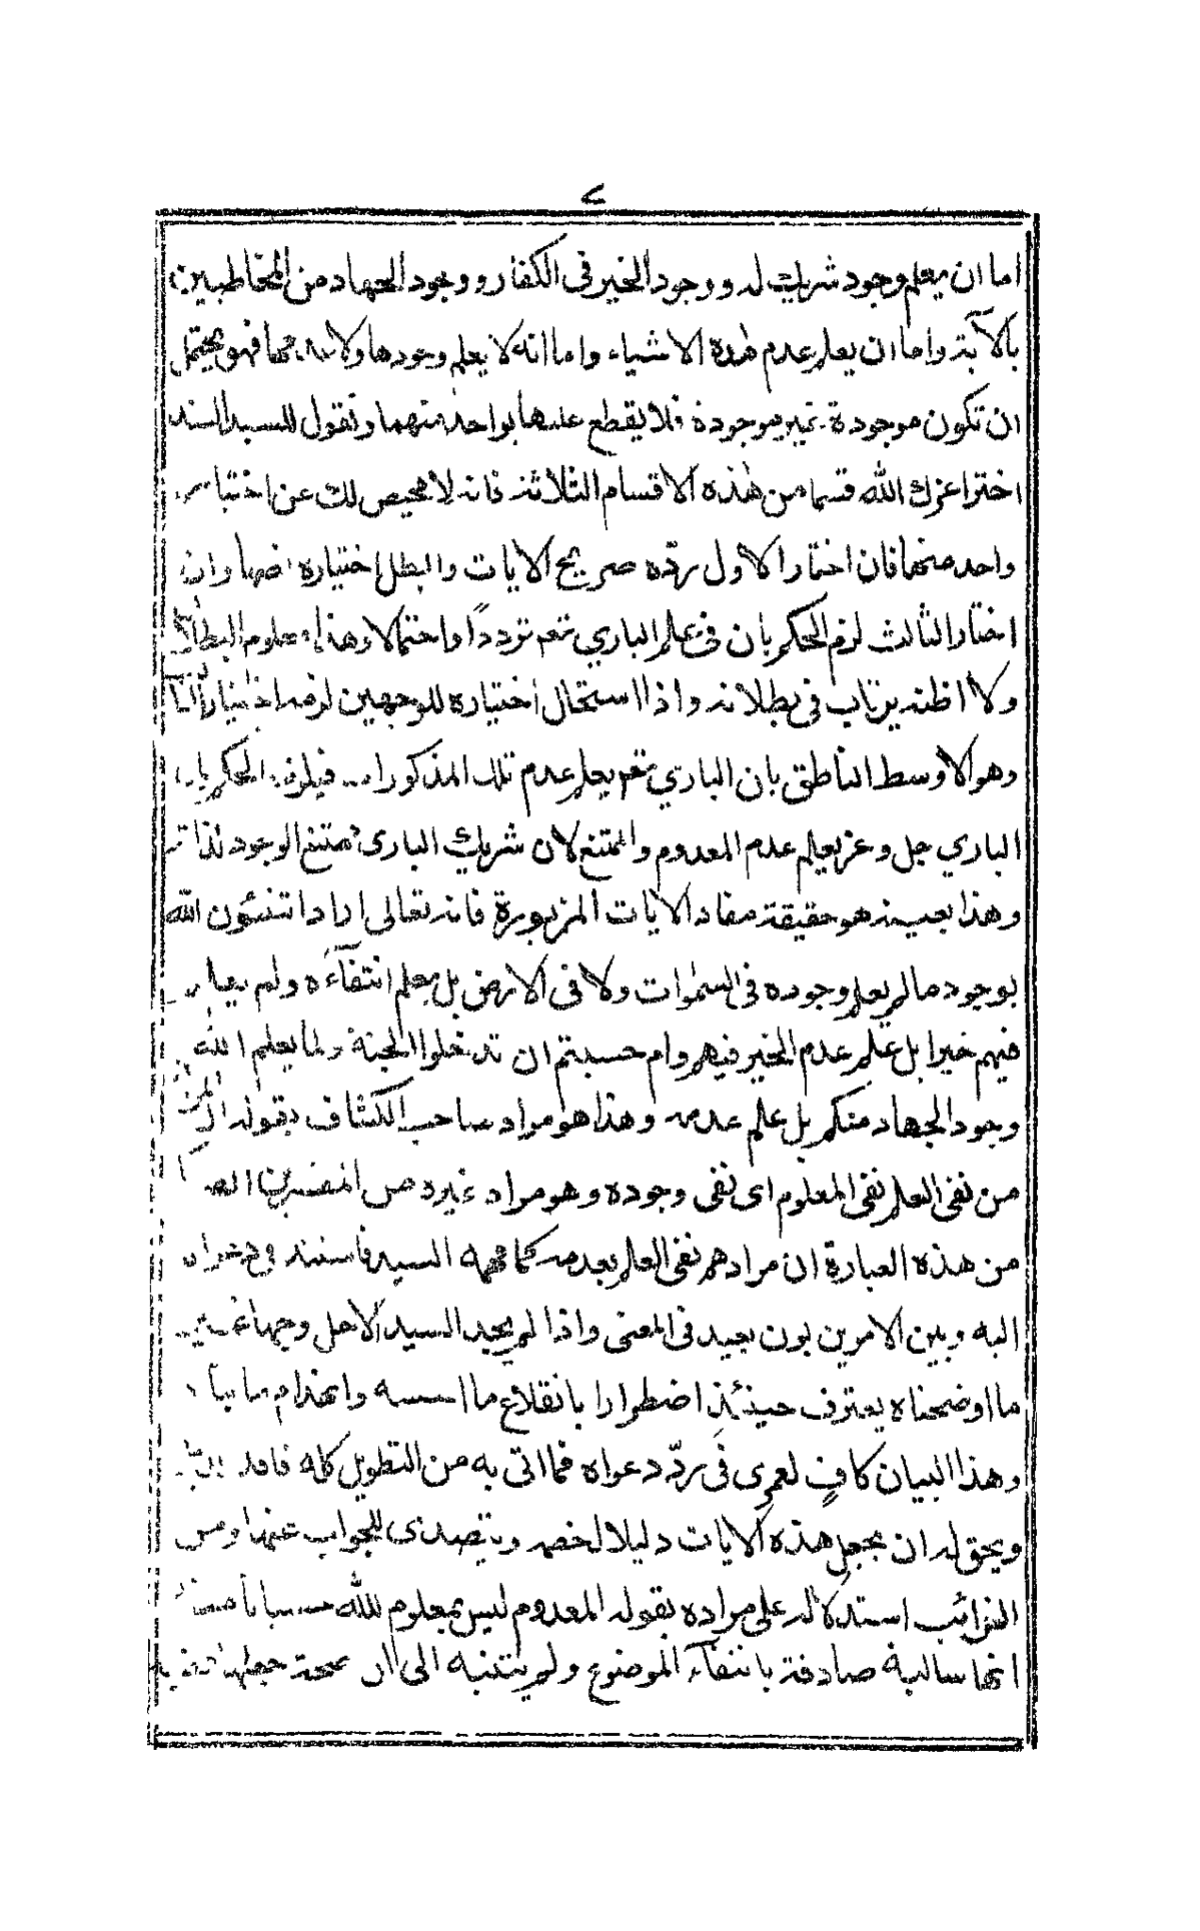 ٧
اما ان يعلم وجود شريك له ووجود الخير في الكفار ووجود الجهاد من المخاطبين
بالآية واما ان يعلم عدم هذه الاشياء واما انه لا يعلم وجودها ولا عدمها فهو يحتمل
ان تكون موجودة غير موجودة فلا يقطع عليها بواحد منهما ونقول للسيد السند
اختر اعزك الله قسما من هذه الاقسام الثلاثة فانه لا محيص لك عن اختيار
واحد منها فان اختار الاول ردّه صريح الايات وابطل اختياره وان
اختار الثالث لزم الحكم بان في علم الباري تعم ترددًا واحتمالا وهذا معلوم البطلان
ولا اظنه يرتاب في بطلانه واذا استحال اختياره للوجهين لزمه اختيار الثاني
وهو الاوسط الناطق بان الباري تعم يعلم عدم تلك المذكورات فيلزمه الحكم بان
الباري جل وعز يعلم عدم المعدوم والممتنع لان شريك الباري ممتنع الوجود لذاته
وهذا بعينه هو حقيقة مفاد الايات المزبورة فانه تعالى اراد اتنبئون الله
بوجود ما لم يعلم وجوده في السموات ولا في الارض بل يعلم انتفآءه ولم يعلم
فيهم خيرا بل علم عدم الخير فيهم وام حسبتم ان تدخلوا الجنة ولما يعلم الله
وجود الجهاد منكم بل علم عدمه وهذا هو مراد صاحب الكشاف بقوله المراد
من نفي العلم نفي المعلوم اى نفي وجوده وهو مراد غيره من المفسرين
من هذه العبارة ان مرادهم نفي العلم بعدمه كما فهمه السيد فاستند في دعواه
اليه وبين الامرين بون بعيد في المعنى واذا لم يجد السيد الاجل وجها غير
ما اوضحناه يعترف حينئذ اضطرارا بانقلاع ما اسسه وانهدام ما بناه
وهذا البيان كافٍ لعمرى في ردّ دعواه فما اتى به من التطويل كله فاقد
ويحق له ان يجعل هذه الايات دليلا لخصمه ويتصدى للجواب عنها ومن
الغرائب استدلاله على مراده بقوله المعدوم ليس بمعلوم لله حسبانا منه
انها سالبة صادقة بانتفآء الموضوع ولم يتنبه الى ان صحة جعلها